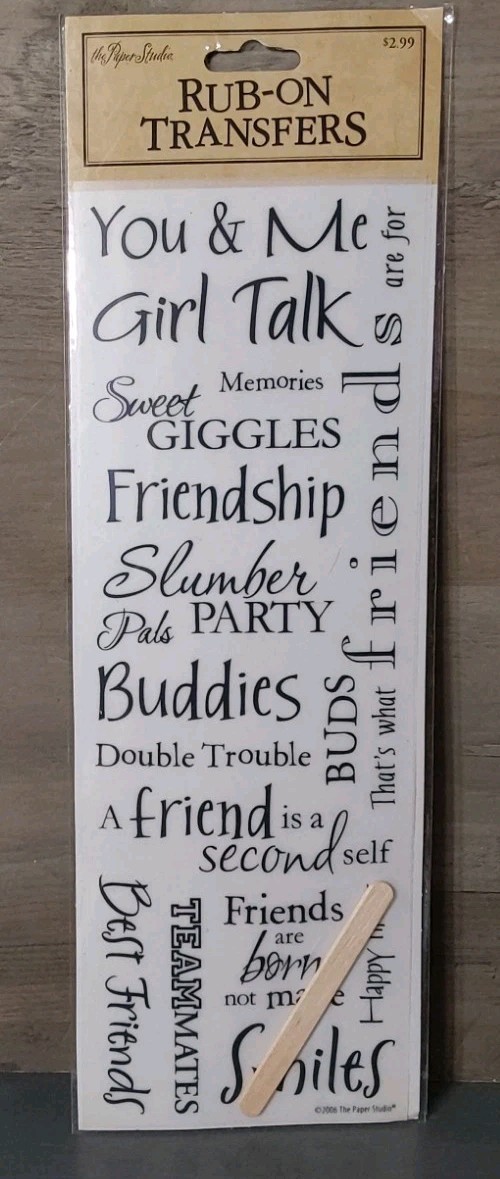 the Paper Studio
$2.99
RUB-ON
TRANSFERS
You & Me
Girl Talk
Sweet Memories
GIGGLES
Friendship
Slumber
PARTY
Pals
Buddies
BUDS
Double Trouble
That's what friends are for
A friend is a
second self
Best Friends
TEAMMATES
Friends
are
born
not
Happy
Smiles
©2006 The Paper Studio®